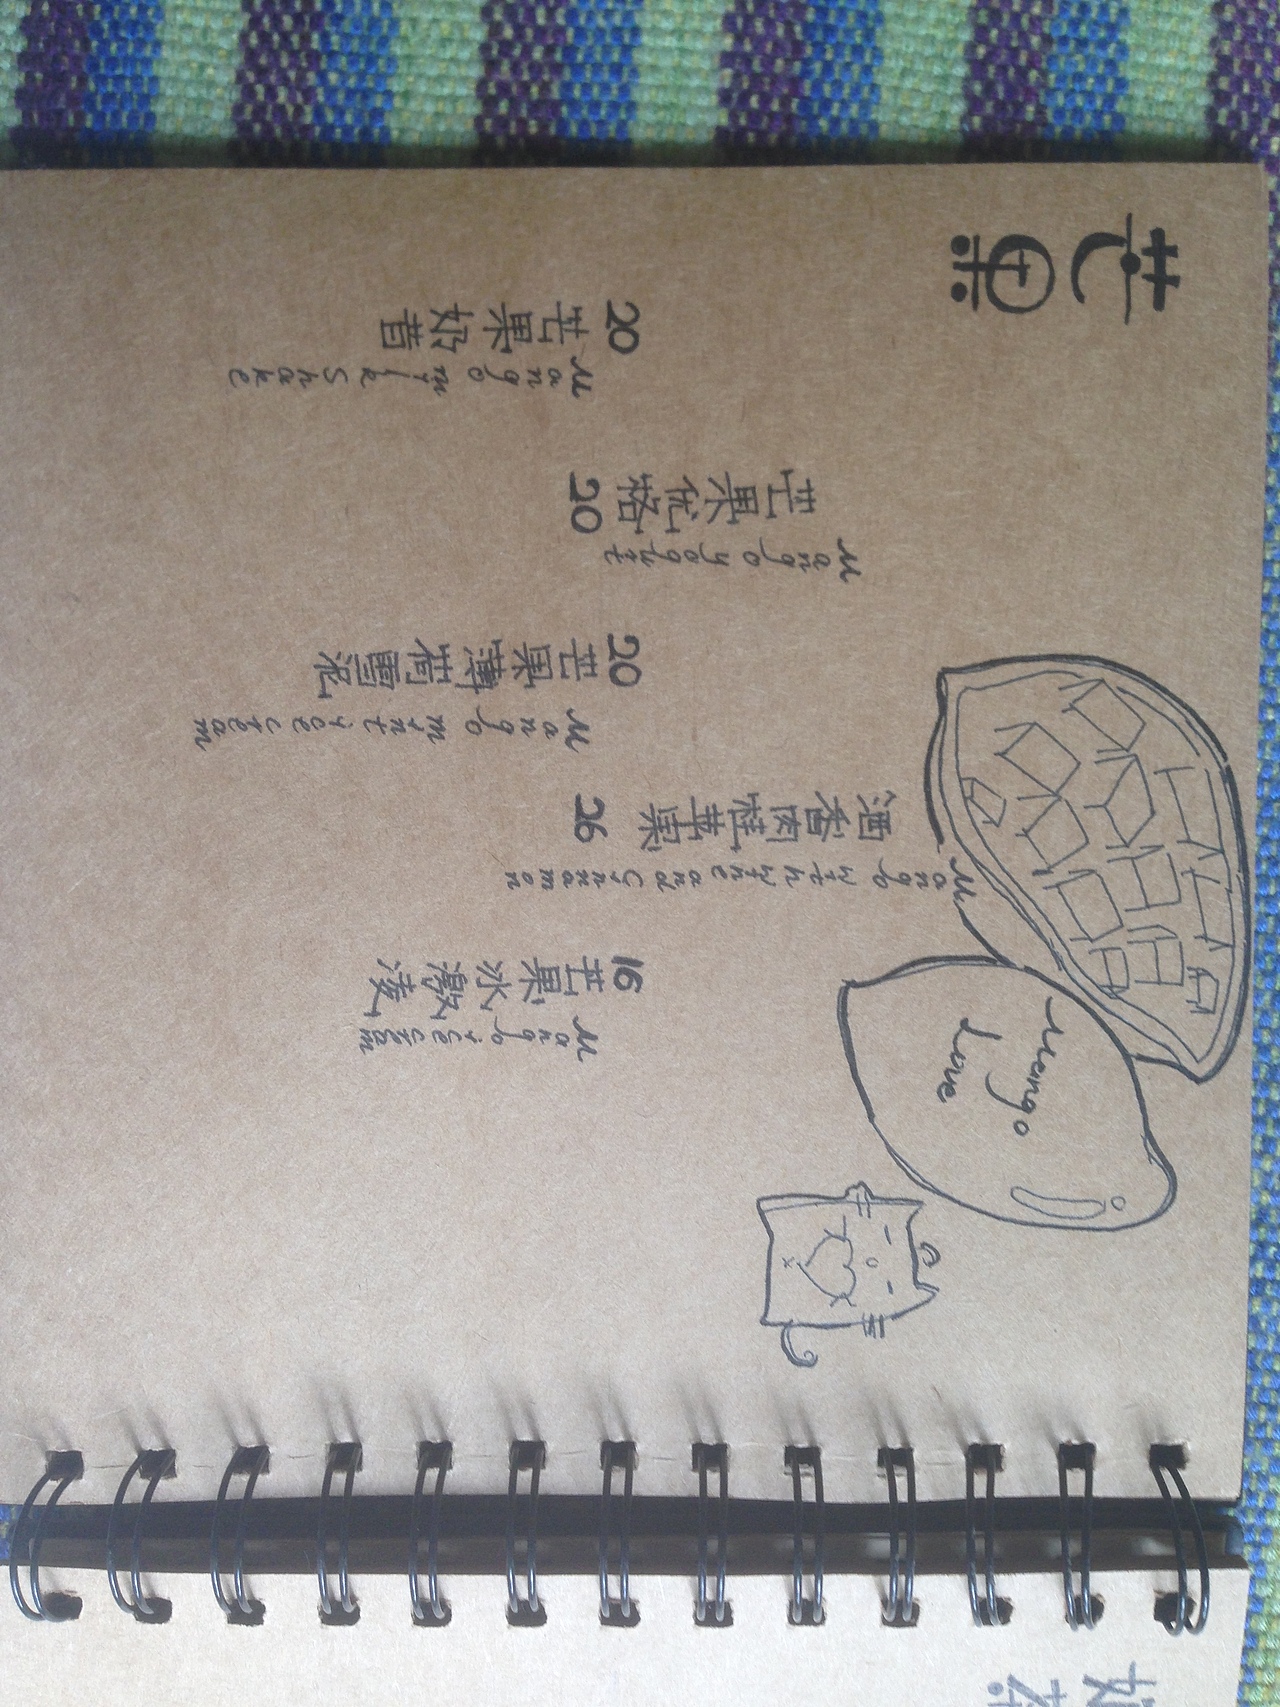 芒果
Mango
Love
20
芒果奶昔
Mango milk Shake
芒果优格
20
Mango yogurt
20
芒果薄荷雪泥
Mango mint ice cream
酒香肉桂苹果
26
Mango with wine and Cinnamon
16
芒果冰激凌
Mango ice cream